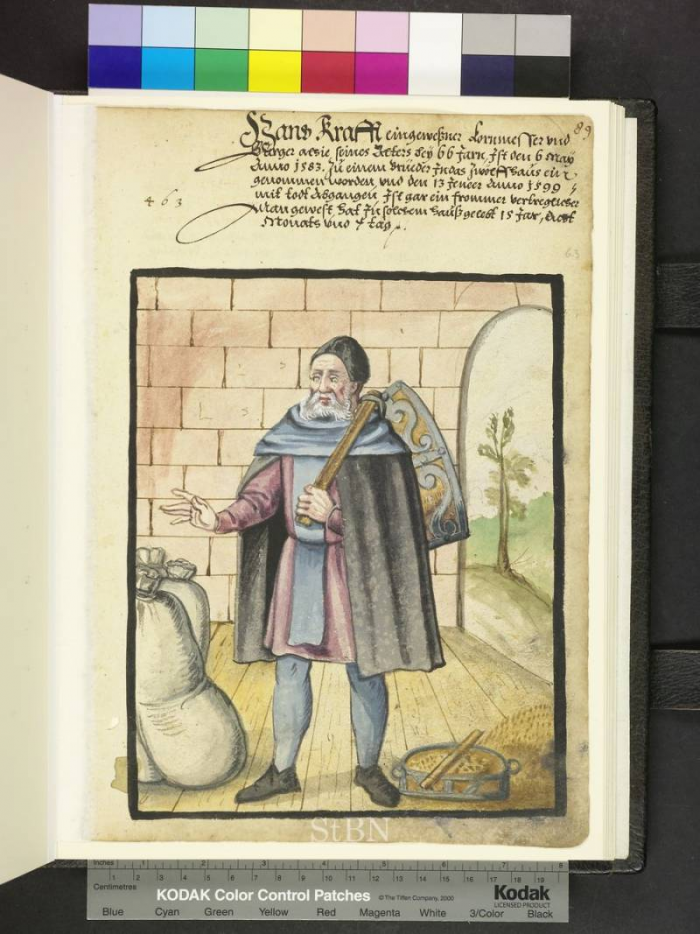 89
Hans Krafft eingewesner Kornmesser und
Burger alhie seines Alters bey 66 Jarn, Ist den 6 May
Anno 1583. Zu einem Brueder Indas Zwelffhaus ein
genommen worden, und den 13 Jener Anno 1599
mit todt Abgangen Ist gar ein frommer
Man gewest, hat In solchem hauß gelebt 15 Jar, Acht
Monats und 7 tag.
463
63
StBN
Inches 1 2 3 4 5 6 7 8
Centimetres 1 2 3 4 5 6 7 8 9 10 11 12 13 14 15 16 17 18 19
KODAK Color Control Patches © The Tiffen Company, 2000 Kodak
LICENSED PRODUCT
Blue Cyan Green Yellow Red Magenta White 3/Color Black